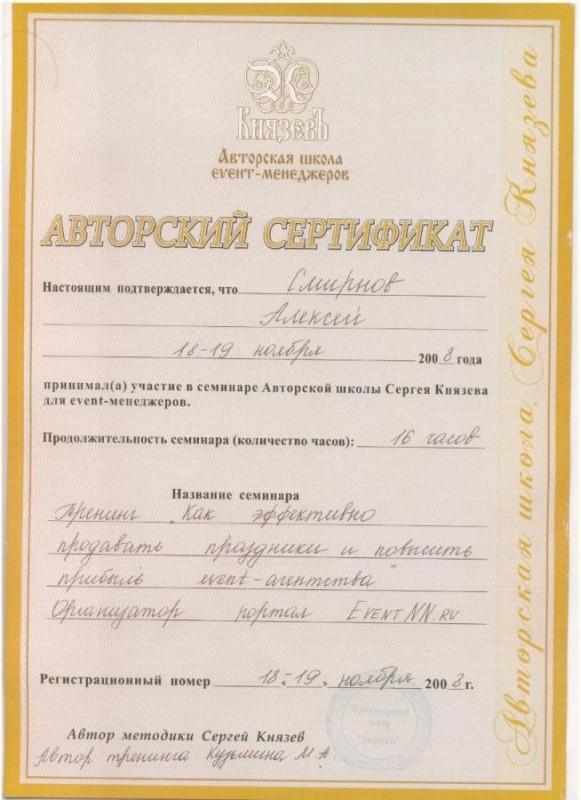 КнязевЪ
Авторская школа
event-менеджеров
АВТОРСКИЙ СЕРТИФИКАТ
Настоящим подтверждается, что Смирнов
Алексей
18-19 ноября 2008 года
принимал(а) участие в семинаре Авторской школы Сергея Князева
для event-менеджеров.
Продолжительность семинара (количество часов): 16 часов
Название семинара
Тренинг "Как эффективно
продавать праздники и повысить
прибыль event-агентства"
Организатор портал EventNN.ru
Регистрационный номер 18-19 ноября 2008 г.
Автор методики Сергей Князев
Автор тренинга Кузьмина М.А.
Авторская школа Сергея Князева